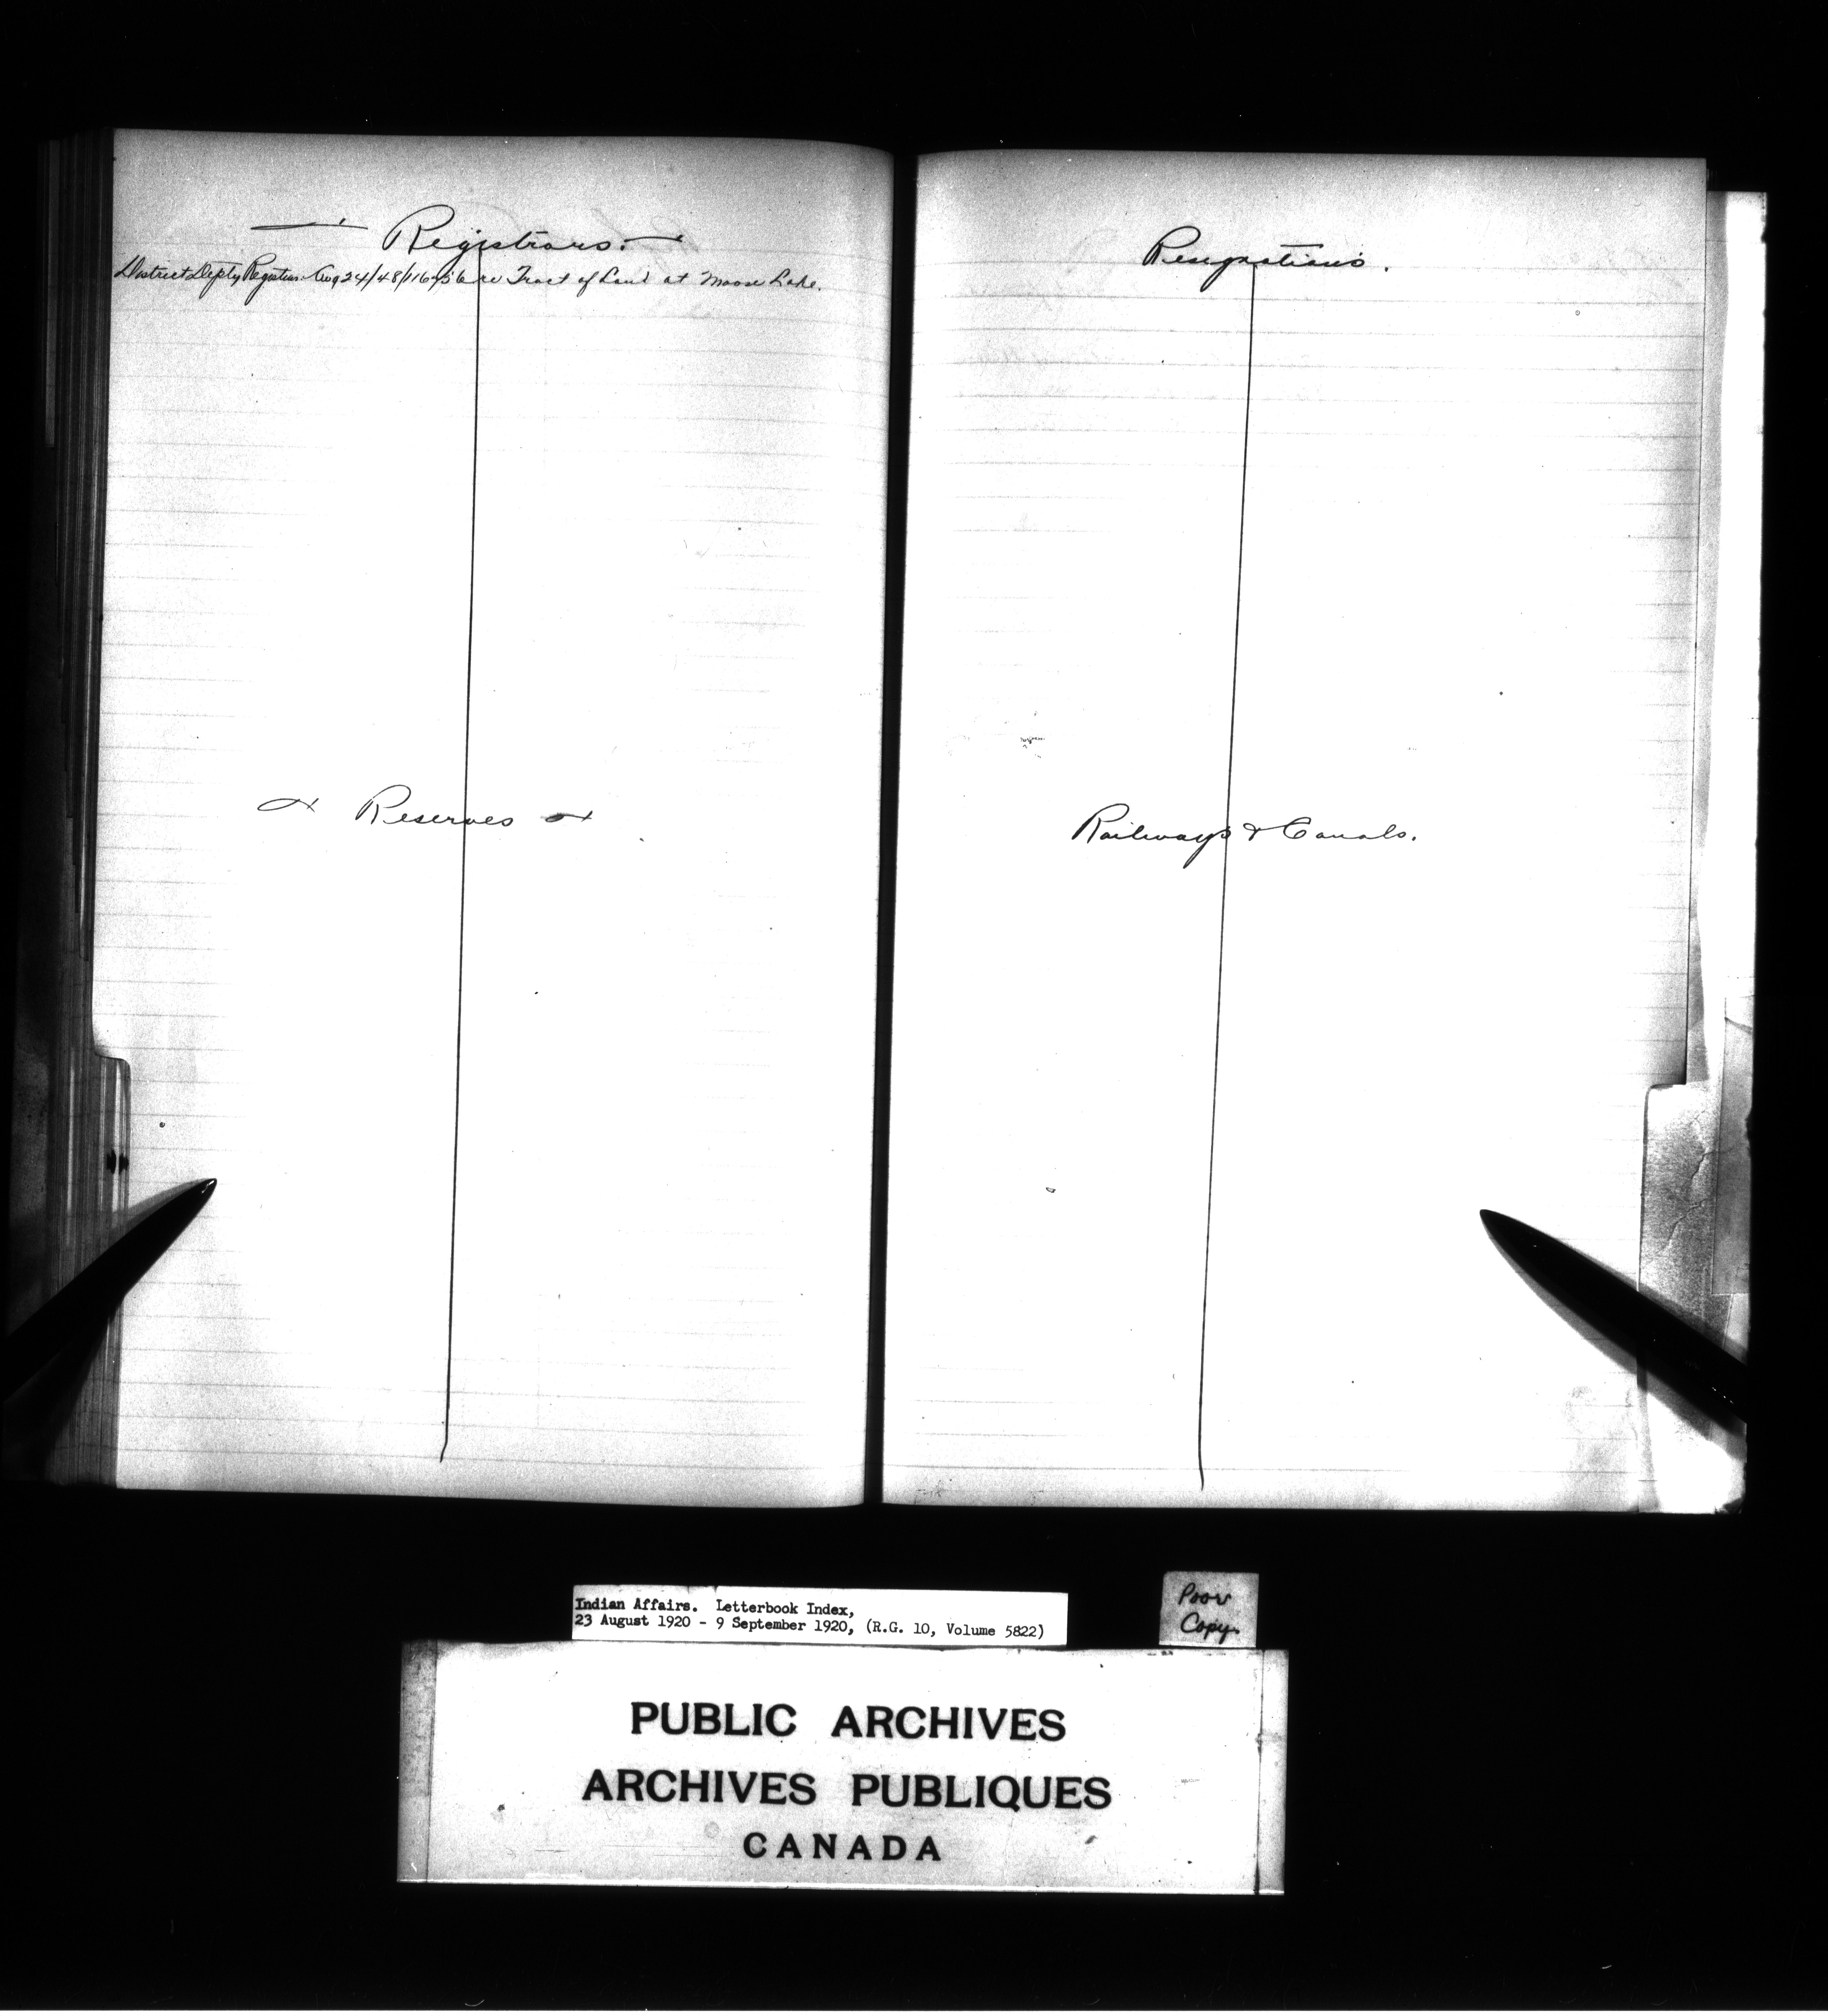 Registrars.
District Depty Registrar Aug 24/48/116756 re Tract of Land at Moose Lake.
Reserves
Resignations.
Railways & Canals.
Indian Affairs. Letterbook Index,
23 August 1920 - 9 September 1920, (R.G. 10, Volume 5822)
Poor
Copy
PUBLIC ARCHIVES
ARCHIVES PUBLIQUES
CANADA